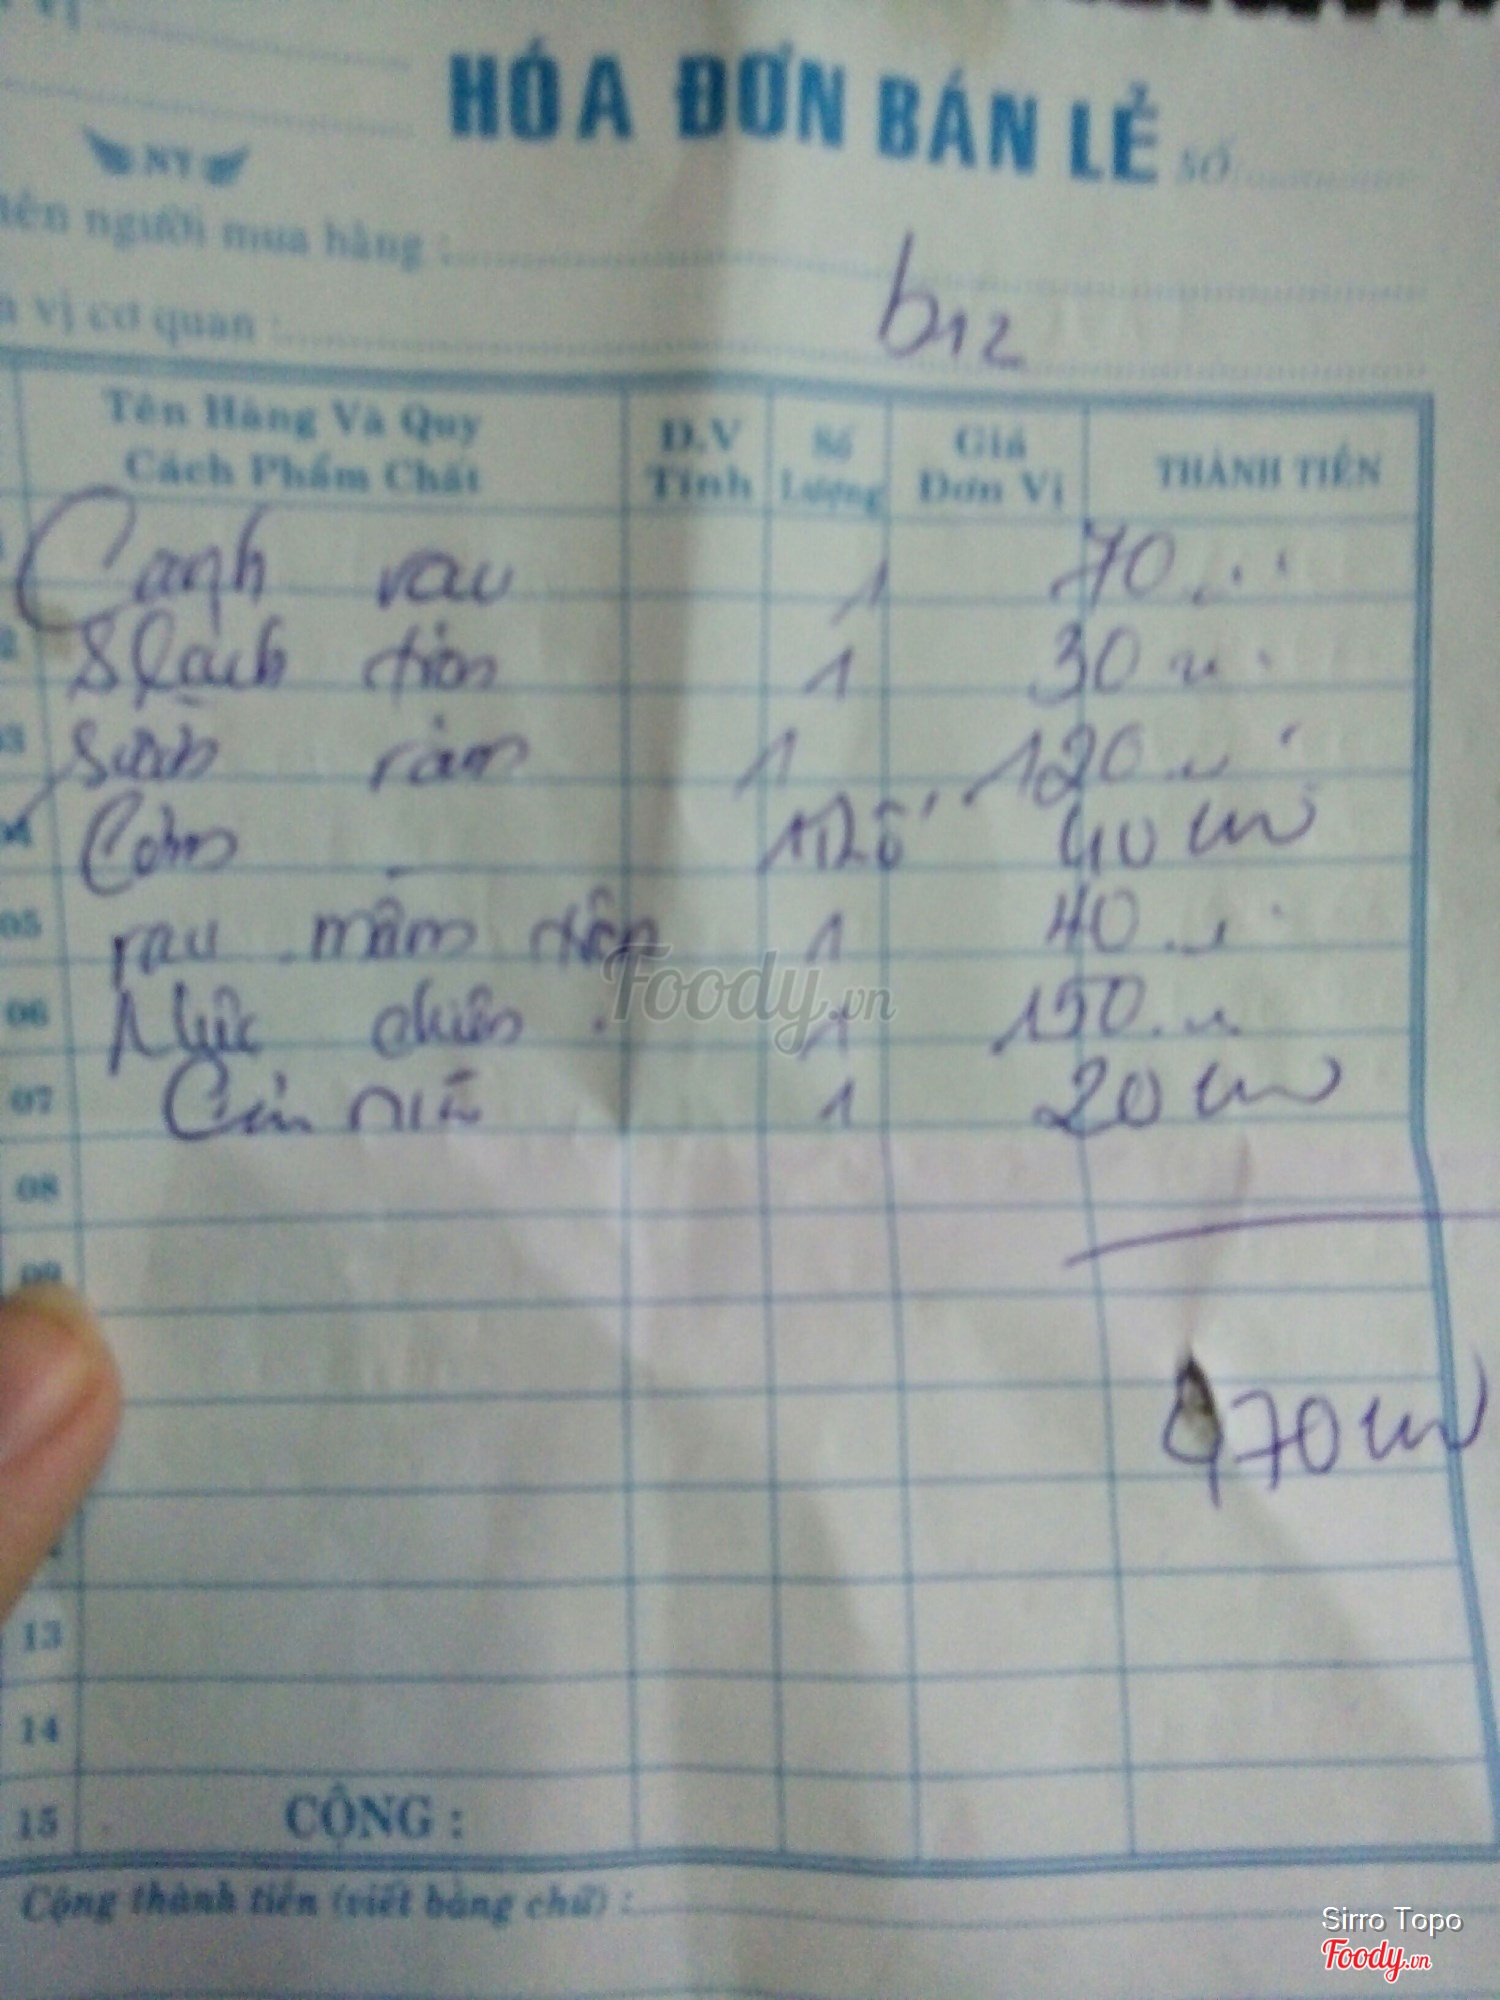 HÓA ĐƠN BÁN LẺ SỐ
NY
tên người mua hàng :
vị cơ quan :
b12
Tên Hàng Và Quy Cách Phẩm Chất Đ.V Tính Số Lượng Giá Đơn Vị THÀNH TIỀN
Canh rau 1 70
1 30
03 Sườn rám 1 120
04 Cơm 40
05 rau mầm 1 40
06 Mực chiên 1 150
07 1 20
08
09
470
13
14
15 CỘNG :
Cộng thành tiền (viết bằng chữ) :
Foody.vn
Sirro Topo
Foody.vn